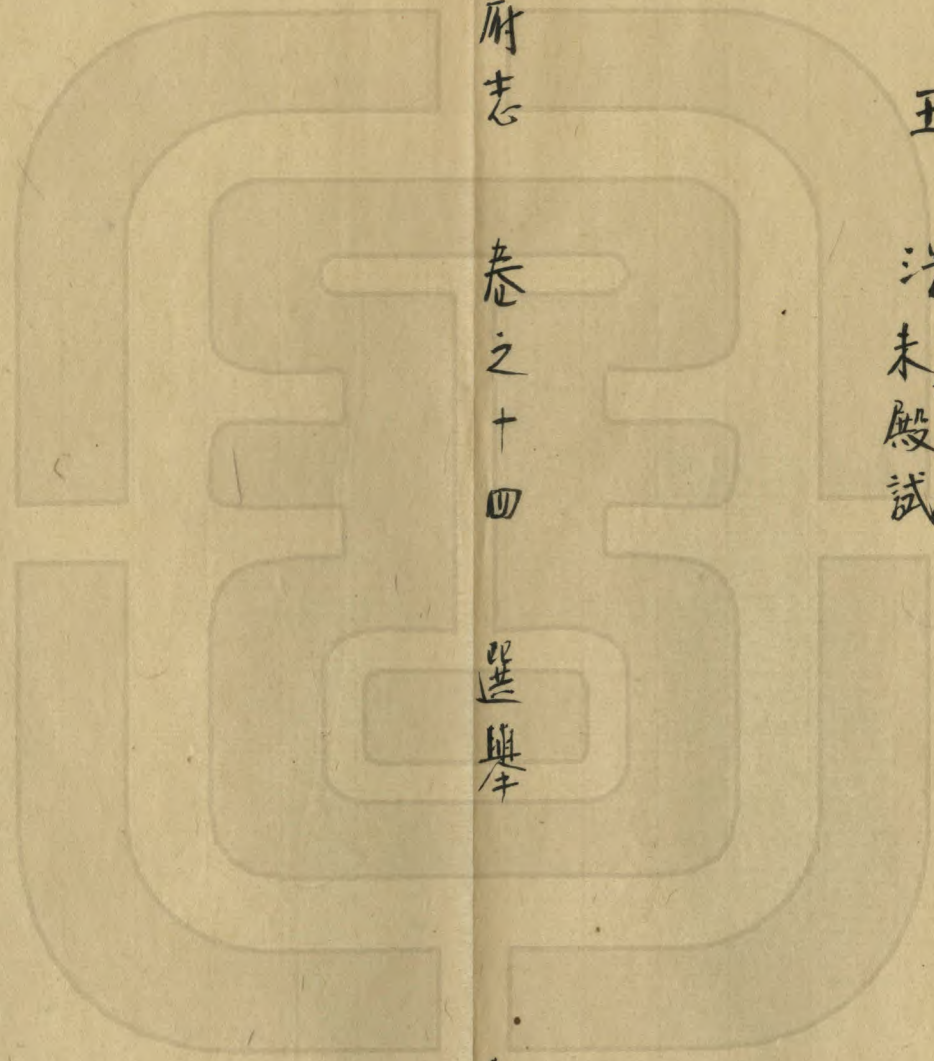 王 浩未殿試
府志 卷之十四 選舉